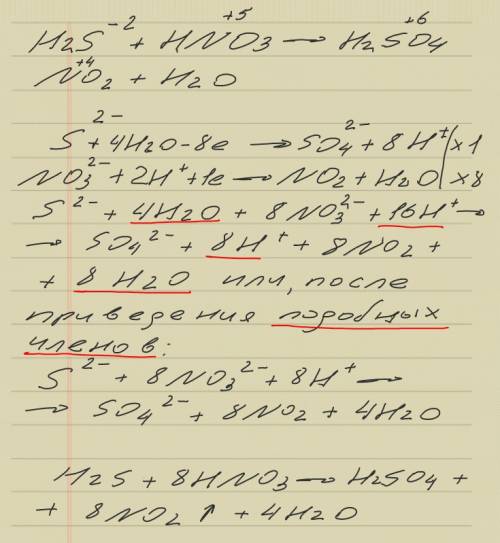 H2S⁻² + HNO3⁺⁵ → H2SO4⁺⁶
NO2⁺⁴ + H2O
S²⁻ + 4H2O - 8e → SO4²⁻ + 8H⁺ | x1
NO3²⁻ + 2H⁺ + 1e → NO2 + H2O | x8
S²⁻ + 4H2O + 8NO3²⁻ + 16H⁺ →
→ SO4²⁻ + 8H⁺ + 8NO2 +
+ 8H2O или, после
приведения подобных
членов:
S²⁻ + 8NO3²⁻ + 8H⁺ →
→ SO4²⁻ + 8NO2 + 4H2O
H2S + 8HNO3 → H2SO4 +
+ 8NO2 ↑ + 4H2O